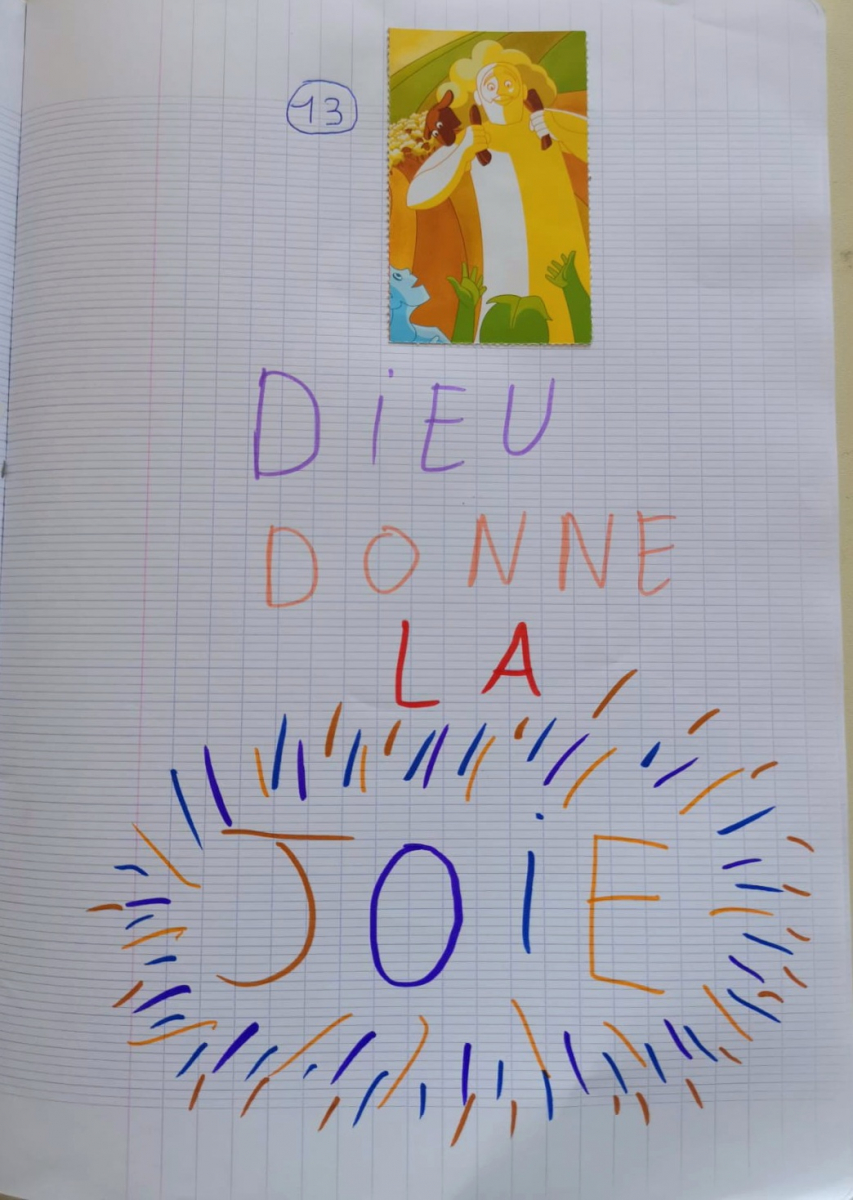 13
DiEU
DONNE
LA
JOiE